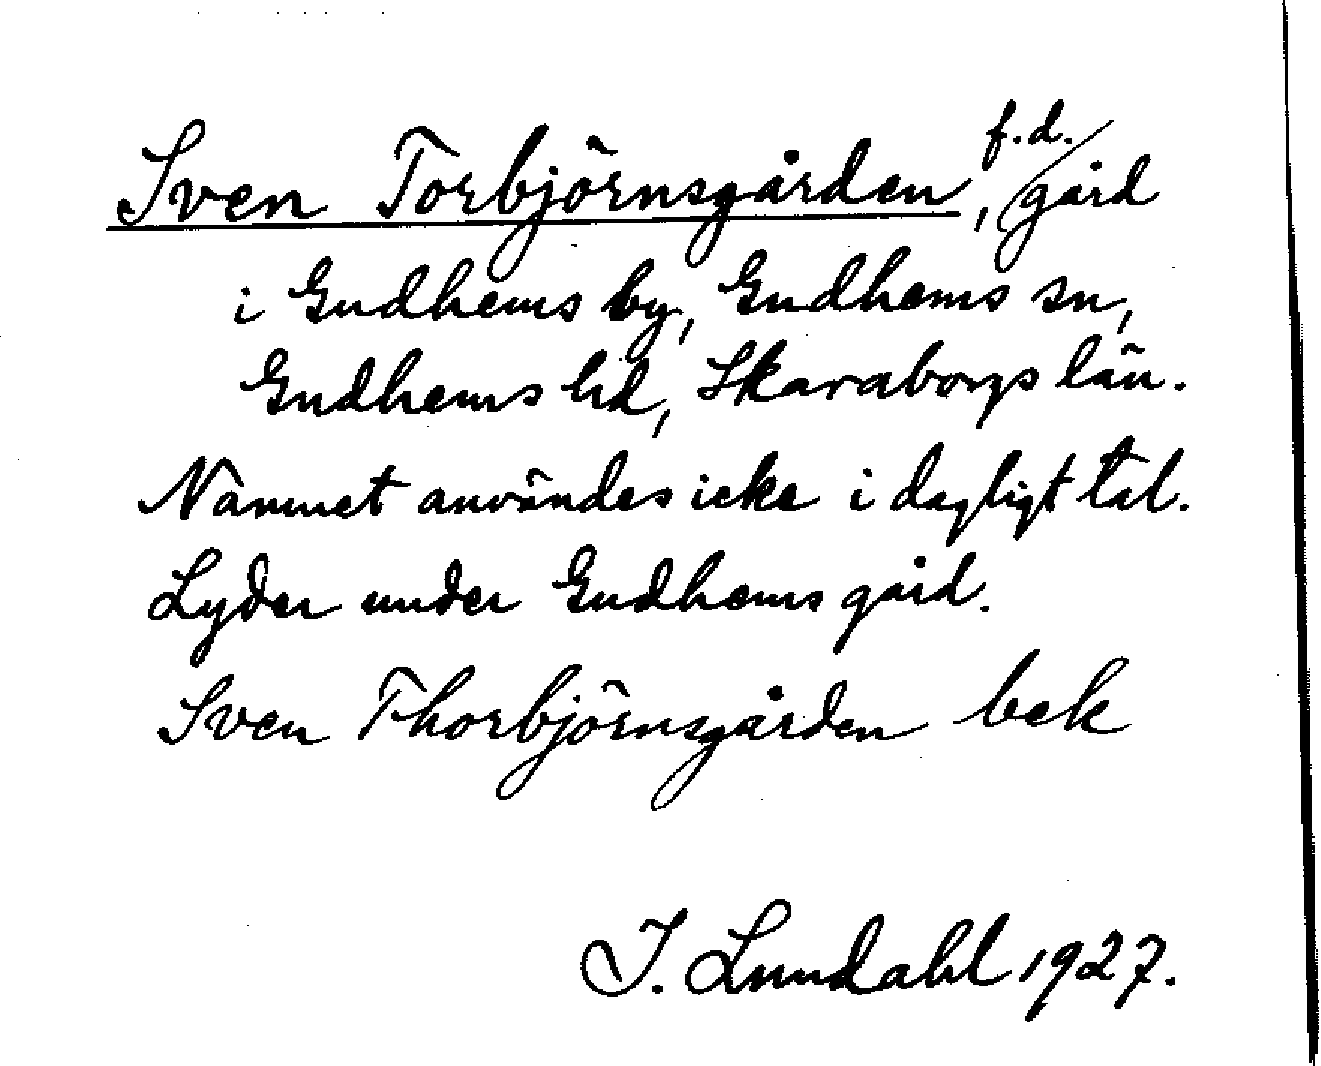 Sven Torbjörnsgården, f.d. gård
i Gudhems by, Gudhems sn,
Gudhems hd, Skaraborgs län.
Namnet användes icke i dagligt tal.
Lyder under Gudhems gård.
Sven Thorbjörnsgården bek
I. Lundahl 1927.